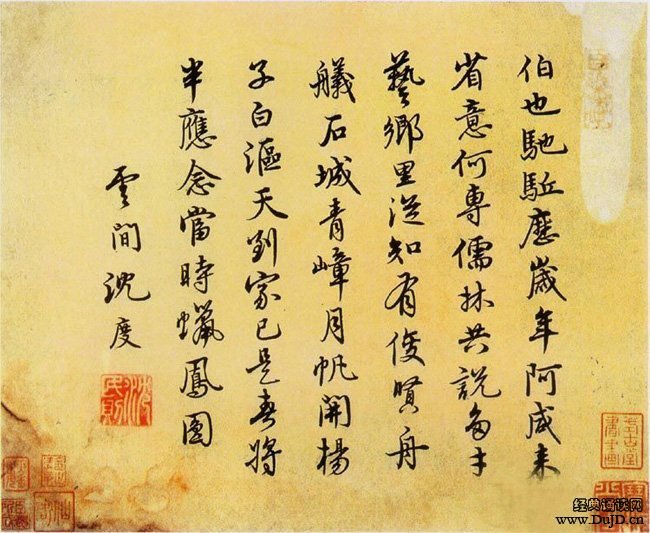 伯也馳駈歷歲年阿咸来
省意何專儒林共説多才
藝鄉里從知有俊賢舟
艤石城青嶂月帆開楊
子白漚天到家已是春將
半應念當時蠟鳳圓
雲間沈度
经典诵读网
www.DujD.cn